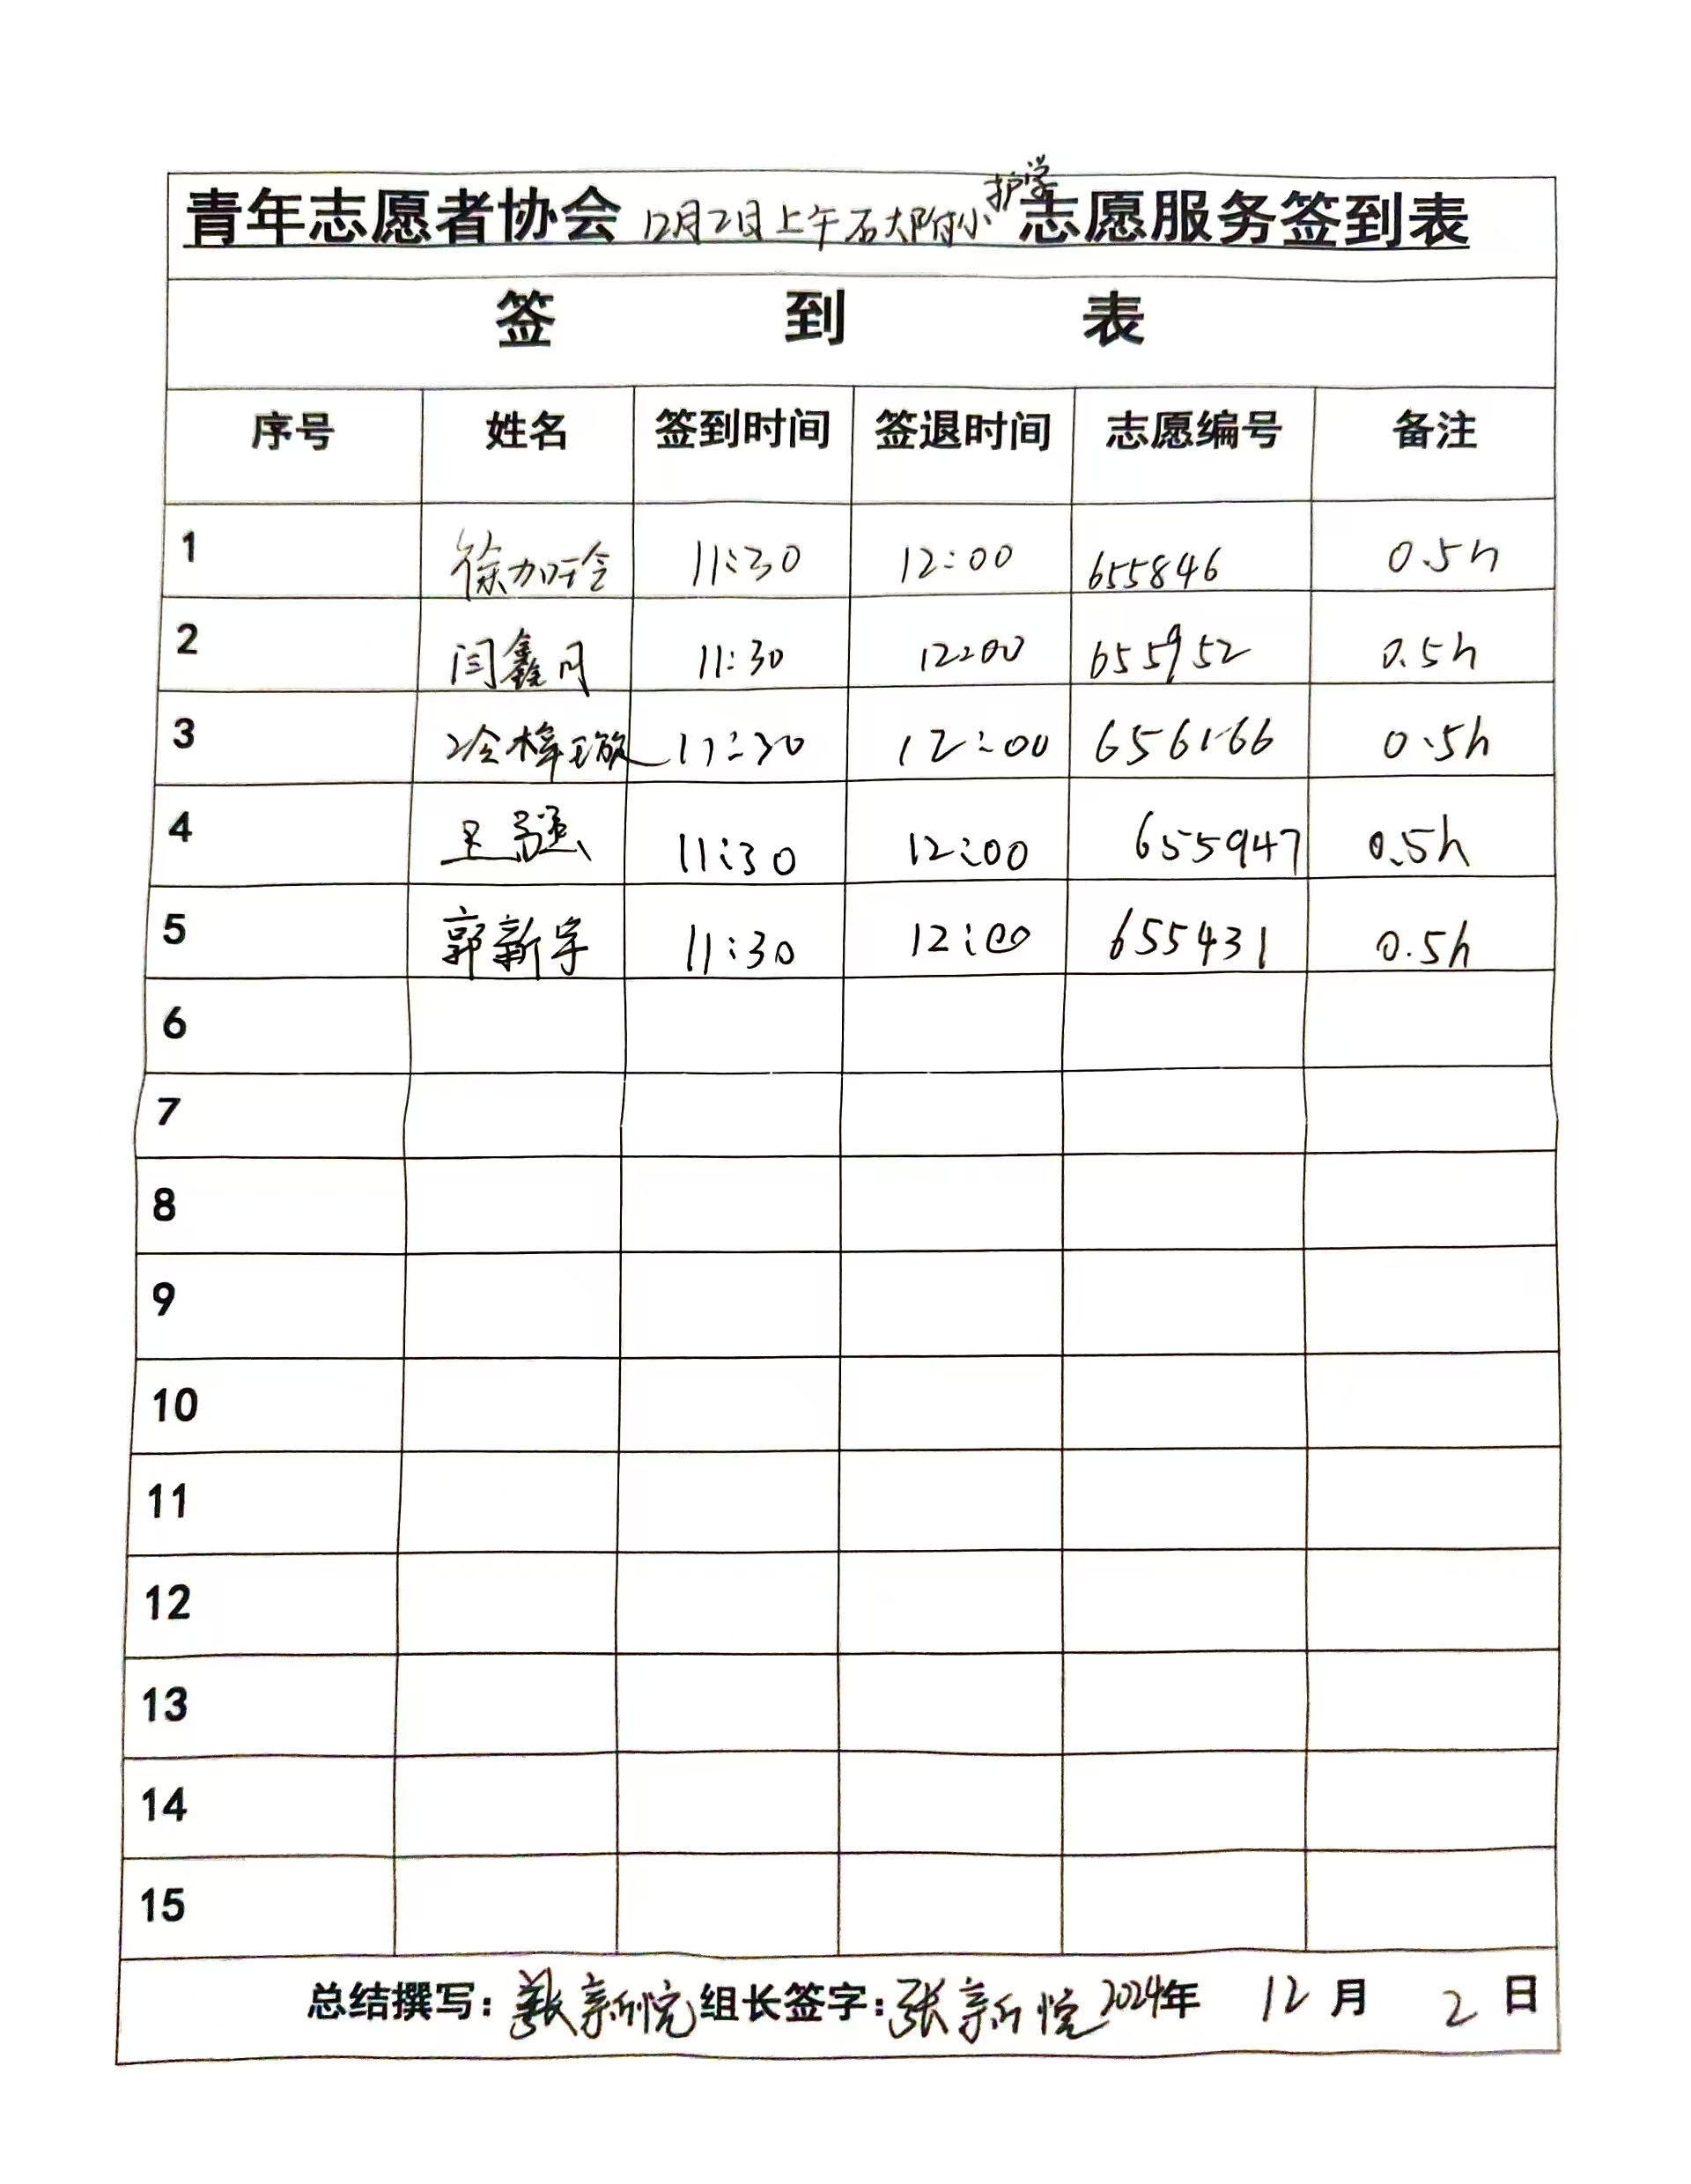 青年志愿者协会 12月2日上午石大附小护学志愿服务签到表
签 到 表
序号 姓名 签到时间 签退时间 志愿编号 备注
1 徐加玲 11:30 12:00 655846 0.5h
2 闫鑫月 11:30 12:00 655952 0.5h
3 冷梓璇 11:30 12:00 656166 0.5h
4 王骦 11:30 12:00 655947 0.5h
5 郭新宇 11:30 12:00 655431 0.5h
6
7
8
9
10
11
12
13
14
15
总结撰写：张新悦 组长签字：张新悦 2024年 12 月 2 日